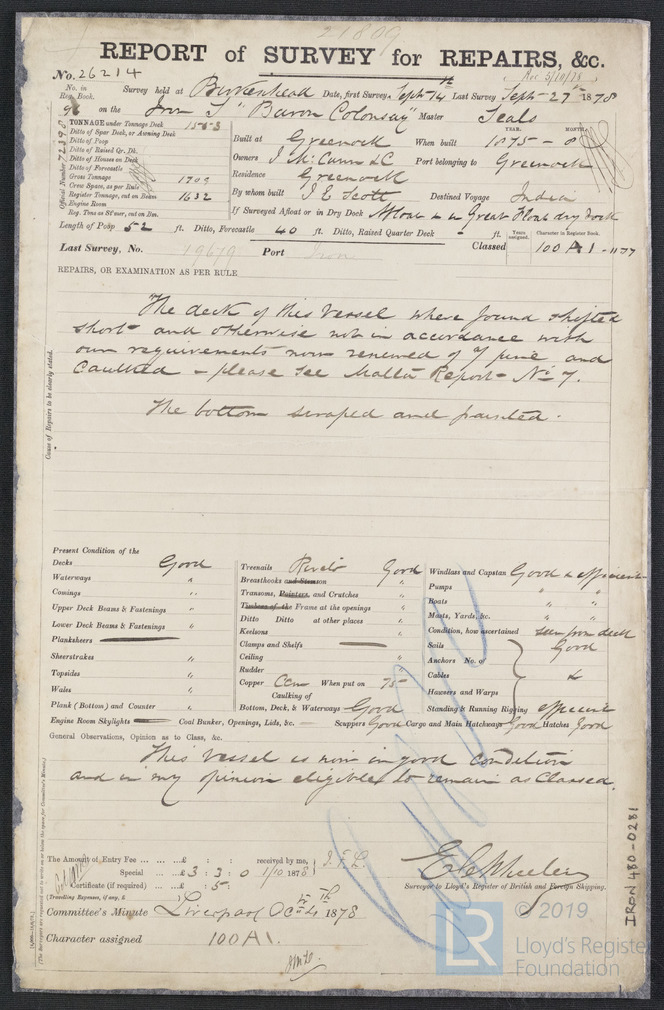 21809
REPORT of SURVEY for REPAIRS, &c.
No. 26214 Rec 5/10/78
No. in Reg. Book. Survey held at Birkenhead Date, first Survey Septr 14th Last Survey Septr 27th 1878
96 on the Iron S "Baron Colonsay" Master Seals
TONNAGE under Tonnage Deck 1553
Ditto of Spar Deck, or Awning Deck
Ditto of Poop
Ditto of Raised Qr. Dk.
Ditto of Houses on Deck
Ditto of Forecastle
Gross Tonnage 1709
Crew Space, as per Rule
Register Tonnage, cut on Beam 1632
Engine Room
Reg. Tons as St'mer, cut on Bm.
Official Number 72398
Built at Greenock When built YEAR. 1875 MONTH. 8
Owners J. McCunn & C Port belonging to Greenock
Residence Greenock
By whom built J E Scott Destined Voyage India
If Surveyed Afloat or in Dry Dock Afloat & in Great Float dry Dock
Length of Poop 52 ft. Ditto, Forecastle 40 ft. Ditto, Raised Quarter Deck - ft.
Last Survey, No. 19679 Port Iron Classed Years assigned. Character in Register Book. 100 A 1 - 11 77
REPAIRS, OR EXAMINATION AS PER RULE
Cause of Repairs to be clearly stated.
The deck of this Vessel where found shifted
short and otherwise not in accordance with
our requirements now renewed of y/ pine and
Caulked - please see Malta Report No 7.
The bottom scraped and painted.
Present Condition of the
Decks Good
Waterways "
Comings "
Upper Deck Beams & Fastenings "
Lower Deck Beams & Fastenings "
Planksheers
Sheerstrakes "
Topsides "
Wales "
Plank (Bottom) and Counter "
Treenails Rivets Good
Breasthooks and Stemson "
Transoms, Pointers, and Crutches "
Timbers of the Frame at the openings "
Ditto Ditto at other places "
Keelsons "
Clamps and Shelfs
Ceiling "
Rudder "
Copper Cem When put on 75
Caulking of
Bottom, Deck, & Waterways Good
Windlass and Capstan Good & efficient
Pumps " "
Boats " "
Masts, Yards, &c. " "
Condition, how ascertained seen from deck
Sails Good
Anchors No. of
Cables &
Hawsers and Warps
Standing & Running Rigging efficient
Engine Room Skylights Coal Bunker, Openings, Lids, &c. Scuppers Good Cargo and Main Hatchways Good Hatches Good
General Observations, Opinion as to Class, &c.
This Vessel is now in good condition
and in my opinion eligible to remain as Classed.
The Amount of Entry Fee ... ... ... £ : : received by me,
Special ... ... £ 3 : 3 : 0 1/10 1878 J. F. L.
Certificate (if required) ... £ : 5 :
(Travelling Expenses, if any, £ )
Surveyor to Lloyd's Register of British and Foreign Shipping.
Committee's Minute Liverpool Oct 4th 1878
Character assigned 100 A 1.
IRON 480-0281
© 2019
LR Lloyd's Register
Foundation